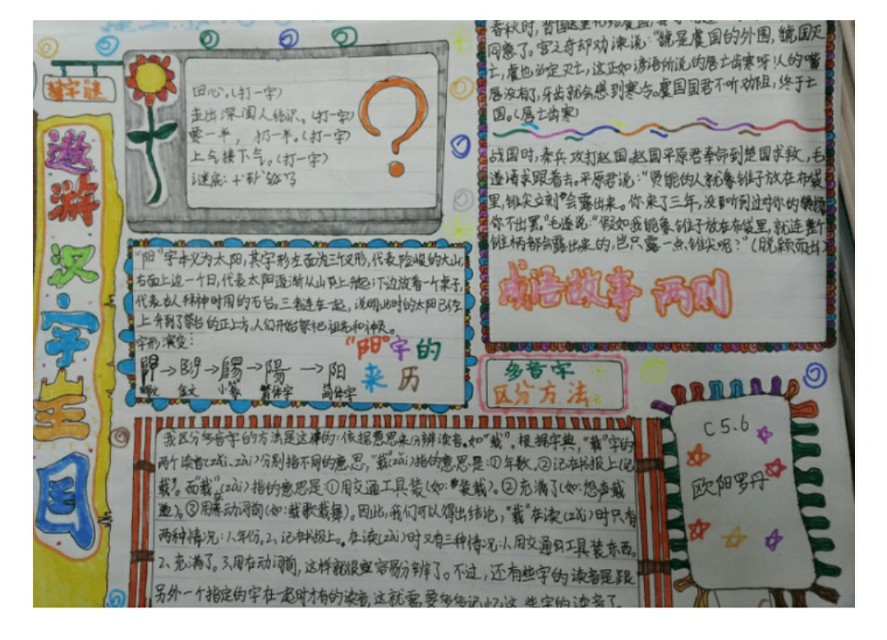 遨游汉字王国
猜字谜
田心。(打一字)
走出深闺人结识。(打一字)
要一半,扔一半。(打一字)
上气接下气。(打一字)
谜底:
?
春秋时,
同意了。宫之奇却劝谏说:"虢是虞国的外围,虢国灭
亡,虞也必定灭亡,这正如谚语所说的唇亡齿寒呀!人的嘴
唇没有了,牙齿就会感到寒冷。虞国国君不听劝阻,终于亡
国。(唇亡齿寒)
战国时,秦兵攻打赵国,赵国平原君奉命到楚国求救,毛
遂请求跟着去。平原君说:"贤能的人就象锥子放在布袋
里,锥尖立刻会露出来。你来了三年,没有听到过对你的
你不出罢。"毛遂说:"假如我能象锥子放在布袋里,就连整个
锥柄都会露出来的,岂只露一点锥尖呢?"(脱颖而出)
成语故事 两则
"阳"字本义为太阳,其字形左面为三个叉形,代表险峻的大山,
右面上边一个日,代表太阳逐渐从山顶上升起;下边放着一个桌子,
代表古人拜神时用的石台。三者连在一起,说明此时的太阳已经
上升到了祭台的正上方,人们开始祭祀祖先和神灵。
字形演变:
→ → → 陽 → 阳
金文 小篆 繁体字 简体字
"阳"字的
来历
多音字
区分方法
我区分多音字的方法是这样的:依据意思来分辨读音。如"载"。根据字典,"载"字的
两个读音(zǎi、zài)分别指不同的意思,"载(zǎi)指的意思是:①年数,②记在书报上(记
载)。而"载"(zài)指的意思是①用交通工具装(如:装载)。②充满了(如:怨声载
道)。③用在动词前(如:载歌载舞)。因此,我们可以得出结论,"载"在读(zǎi)时只有
两种情况:1、年份,2、记在书报上。在读(zài)时又有三种情况:1、用交通工具装东西。
2、充满了。3、用在动词前,这样就很容易分辨了。不过,还有些字的读音是跟
另外一个指定的字在一起时才有的读音,这就需要多多记忆这些字的读音了。
C5.6
欧阳罗丹